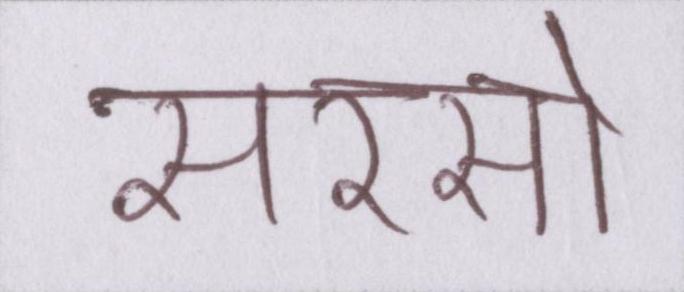 सरसो